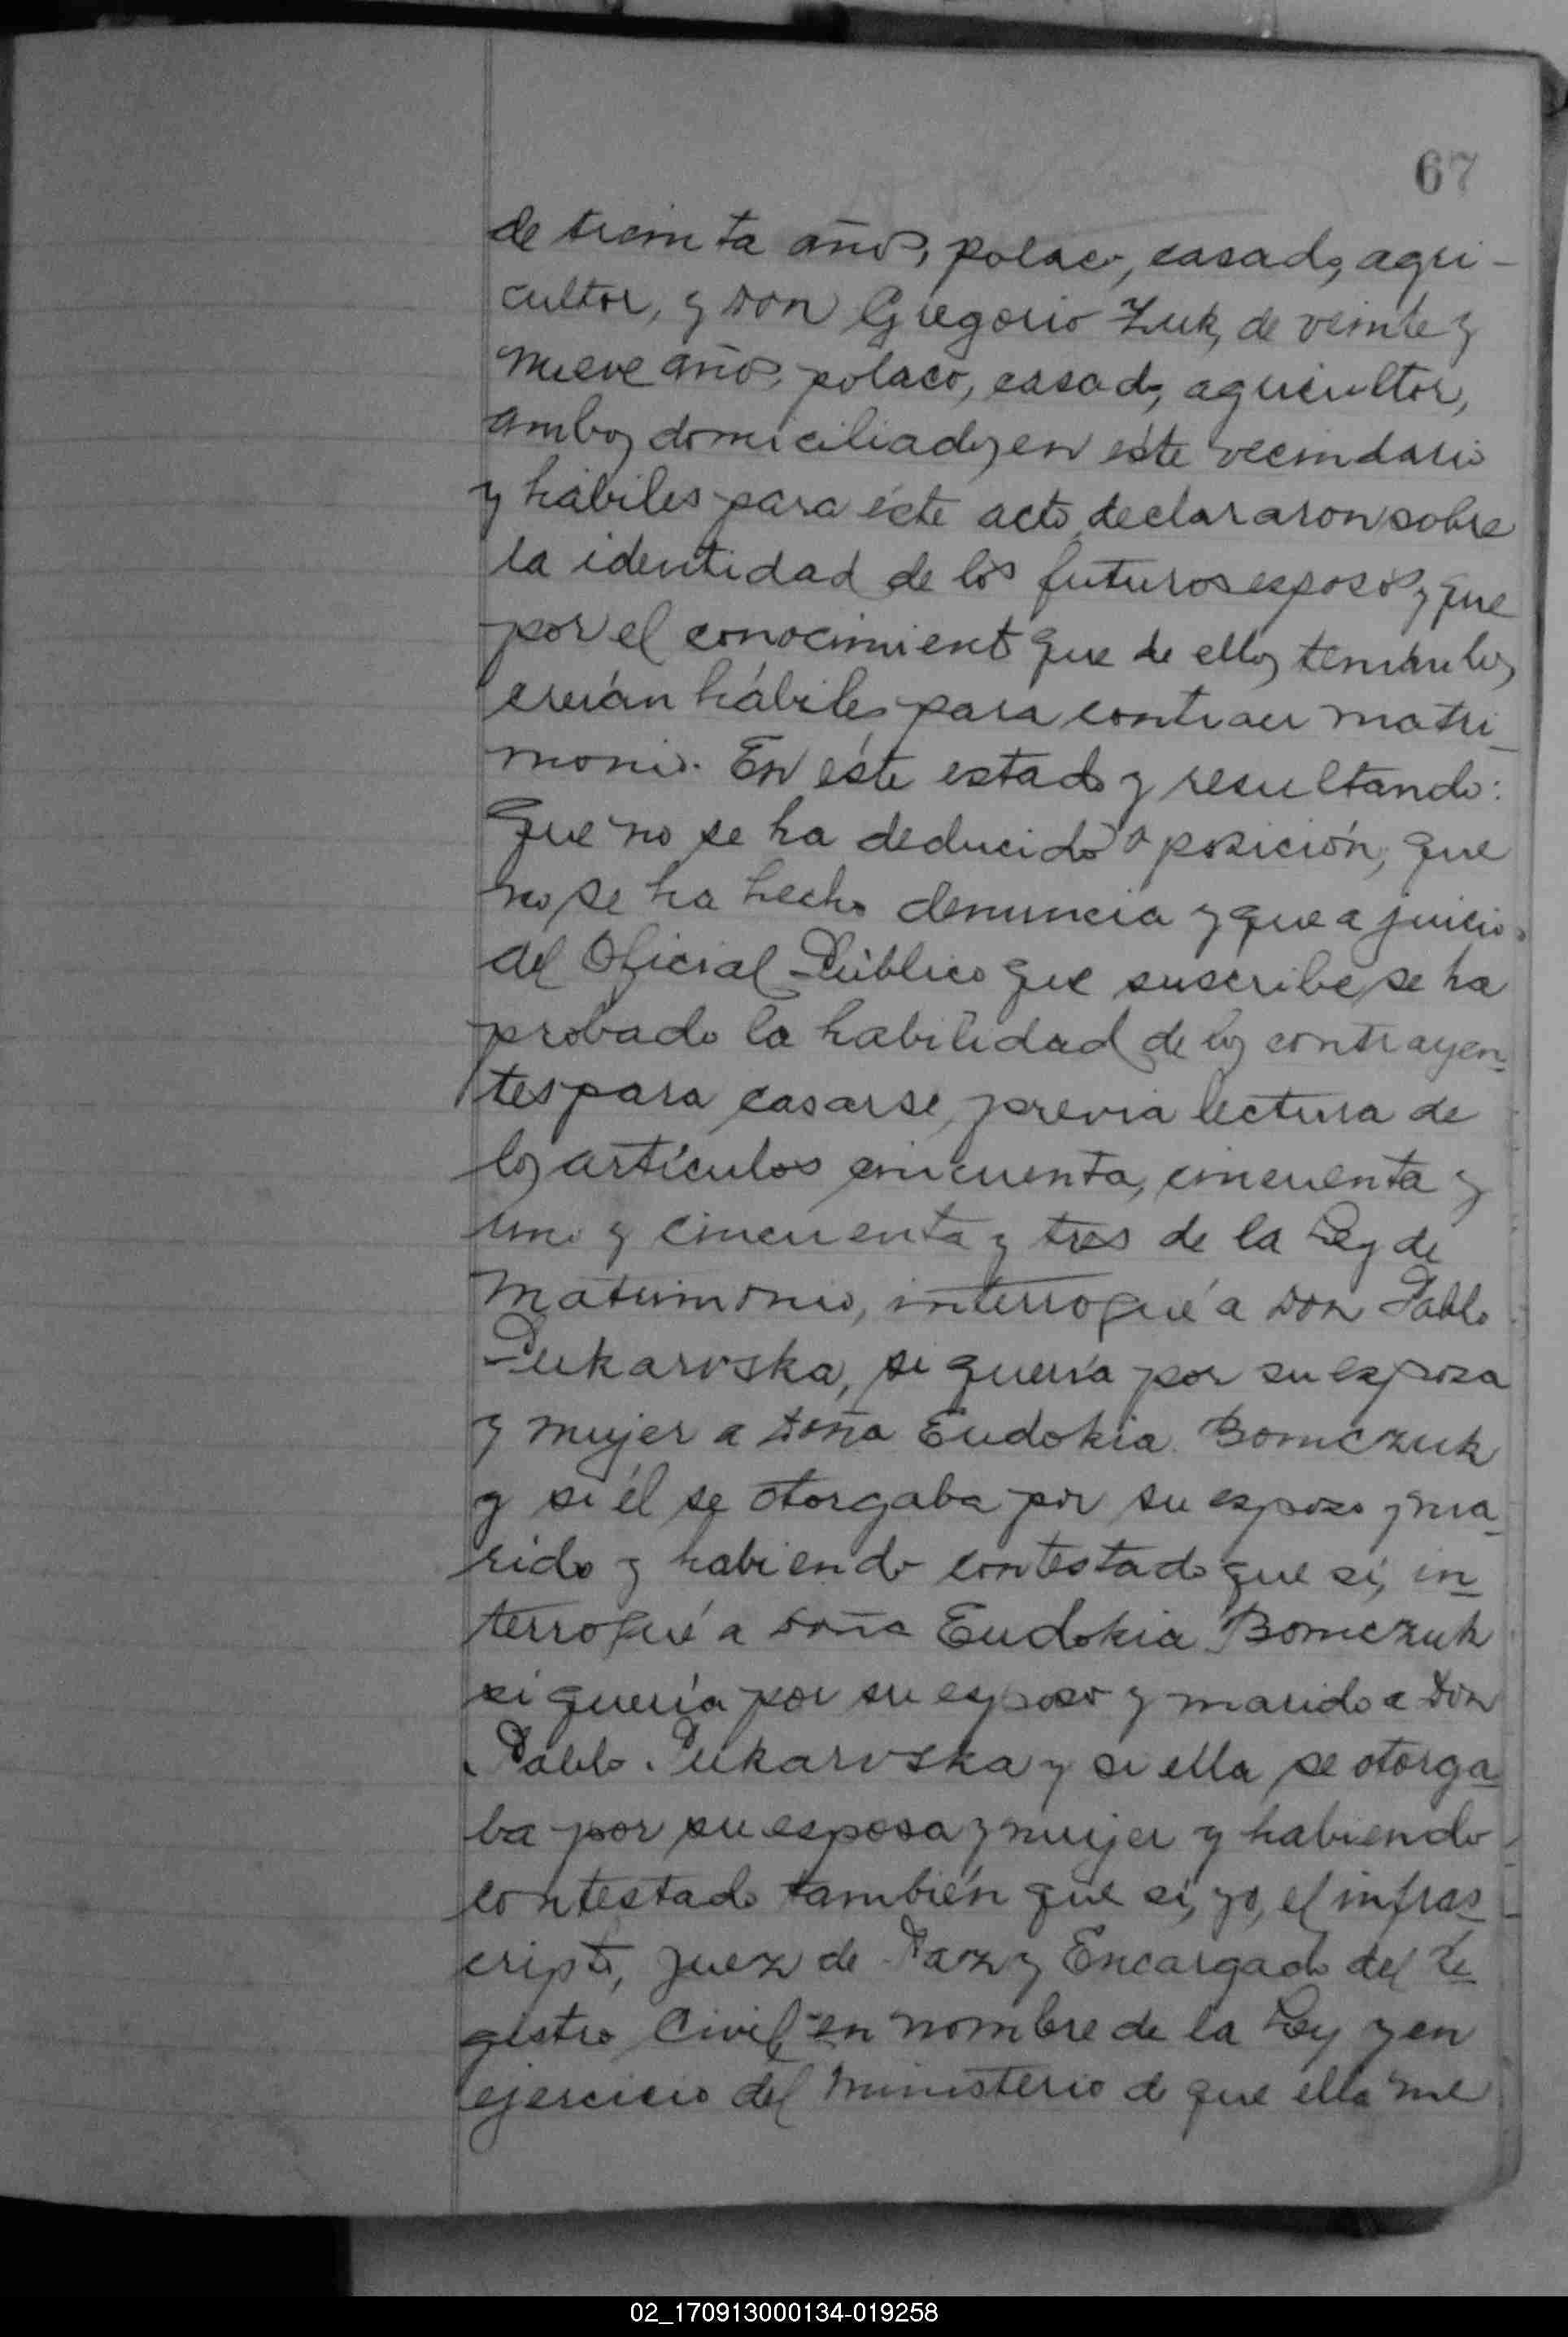 67
de treinta años, polaco, casado, agri-
cultor, y Don Gregorio Zuk, de veinte y
nueve años, polaco, casado, agricultor,
ambos domiciliados en éste vecindario
y hábiles para éste acto, declararon sobre
la identidad de los futuros esposos y que
por el conocimiento que de ellos tenían los
creían hábiles para contraer matri-
monio. En éste estado y resultando:
Que no se ha deducido oposición, que
no se ha hecho denuncia y que a juicio
del Oficial Público que suscribe, se ha
probado la habilidad de los contrayen-
tes para casarse, previa lectura de
los artículos cincuenta, cincuenta y
uno y cincuenta y tres de la Ley de
Matrimonio, interrogué a Don Pablo
Pukarvska, si quería por su esposa
y mujer a Doña Eudokia Bomczuk
y si él se otorgaba por su esposo y ma-
rido y habiendo contestado que sí, in-
terrogué a Doña Eudokia Bomczuk
si quería por su esposo y marido a Don
Pablo Pukarvska y si ella se otorga-
ba por su esposa y mujer y habiendo
contestado también que sí, yo, el infras-
cripto, Juez de Paz y Encargado del Re-
gistro Civil, en nombre de la Ley y en
ejercicio del ministerio de que ella me
02_170913000134-019258